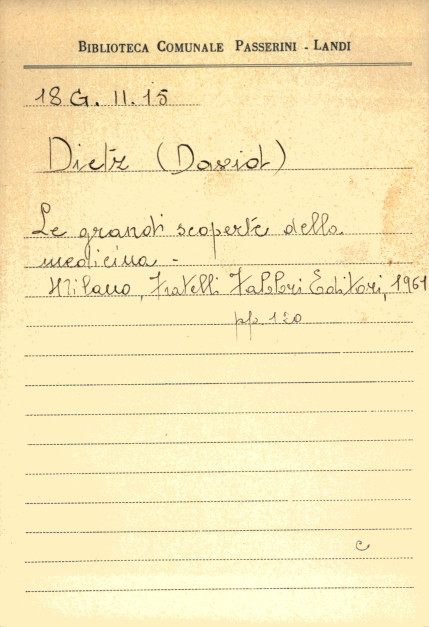 BIBLIOTECA COMUNALE PASSERINI - LANDI
18 G. II. 15
Dietz (David)
Le grandi scoperte della
medicina -
Milano, Fratelli Fabbri Editori, 1961
pp. 120
c